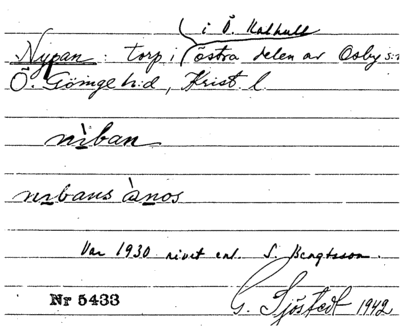 i Ö. Kalhult
Nypan : torp i östra delen av Osby s:n
Ö. Göinge h:d, Krist l.
nìban
nibans ànos
Var 1930 rivet enl. S. Bengtsson.
Nr 5433
G. Sjöstedt 1942